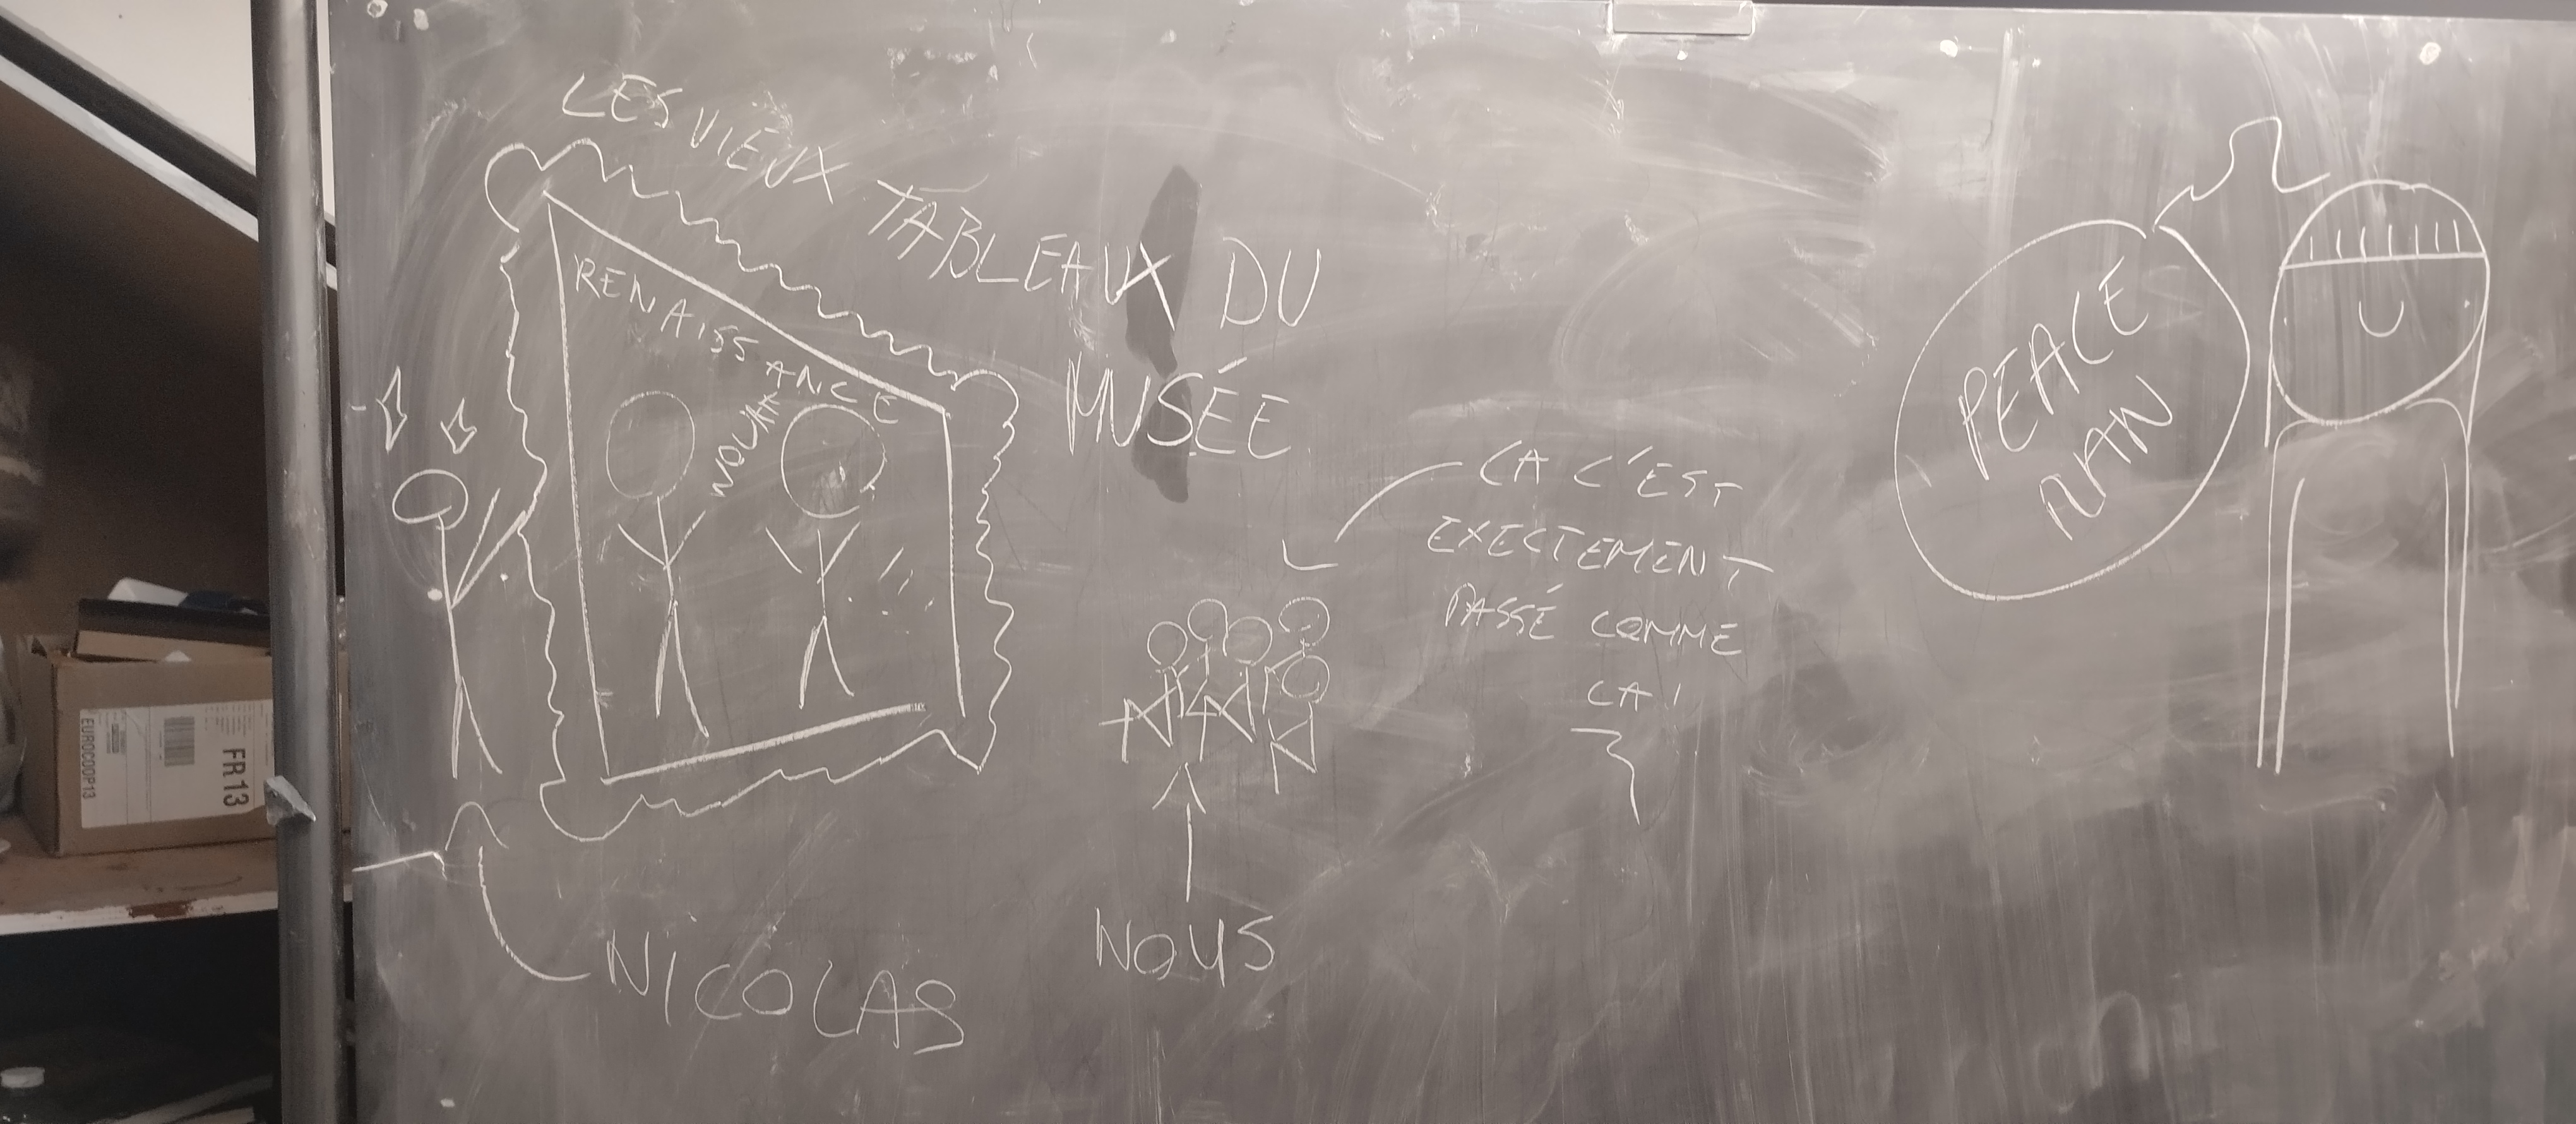 LES VIEUX TABLEAUX DU
MUSÉE
RENAISSANCE
NICOLAS
NOUS
CA C'EST
EXECTEMENT
PASSÉ COMME
CA!
PEACE
MAN
FR13
EUROCOOP13